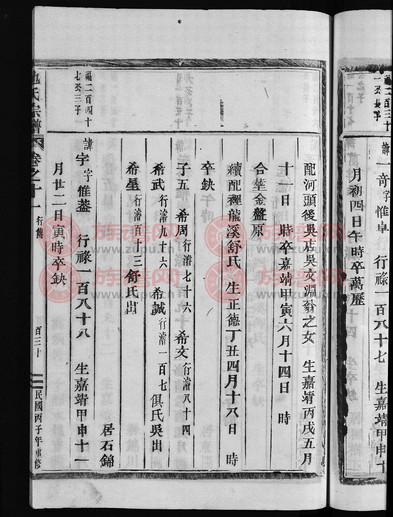 福二百三十
一公長子
諱一奇字惟卓 行祿一百八十七 生嘉靖甲申十
月初四日午時卒萬歷
配河頭後吳店吳文淵翁之女 生嘉靖丙戌五月
十一日 時卒嘉靖甲寅六月十四日 時
合葬金盤原
續配裡龍溪舒氏 生正德丁丑四月十八日 時
卒缺
子五 希周行濬七十六 希文行濬八十四
希武行濬九十六 希誠行濬一百七俱氏吳出
希星行濬百十三舒氏出
居石錦
福二百四十
七公三子
諱 字惟藎 行祿一百八十八 生嘉靖甲申十一
月廿二日寅時卒缺
氏宗譜 卷之十一 行傳 百三十 民國丙子年重修